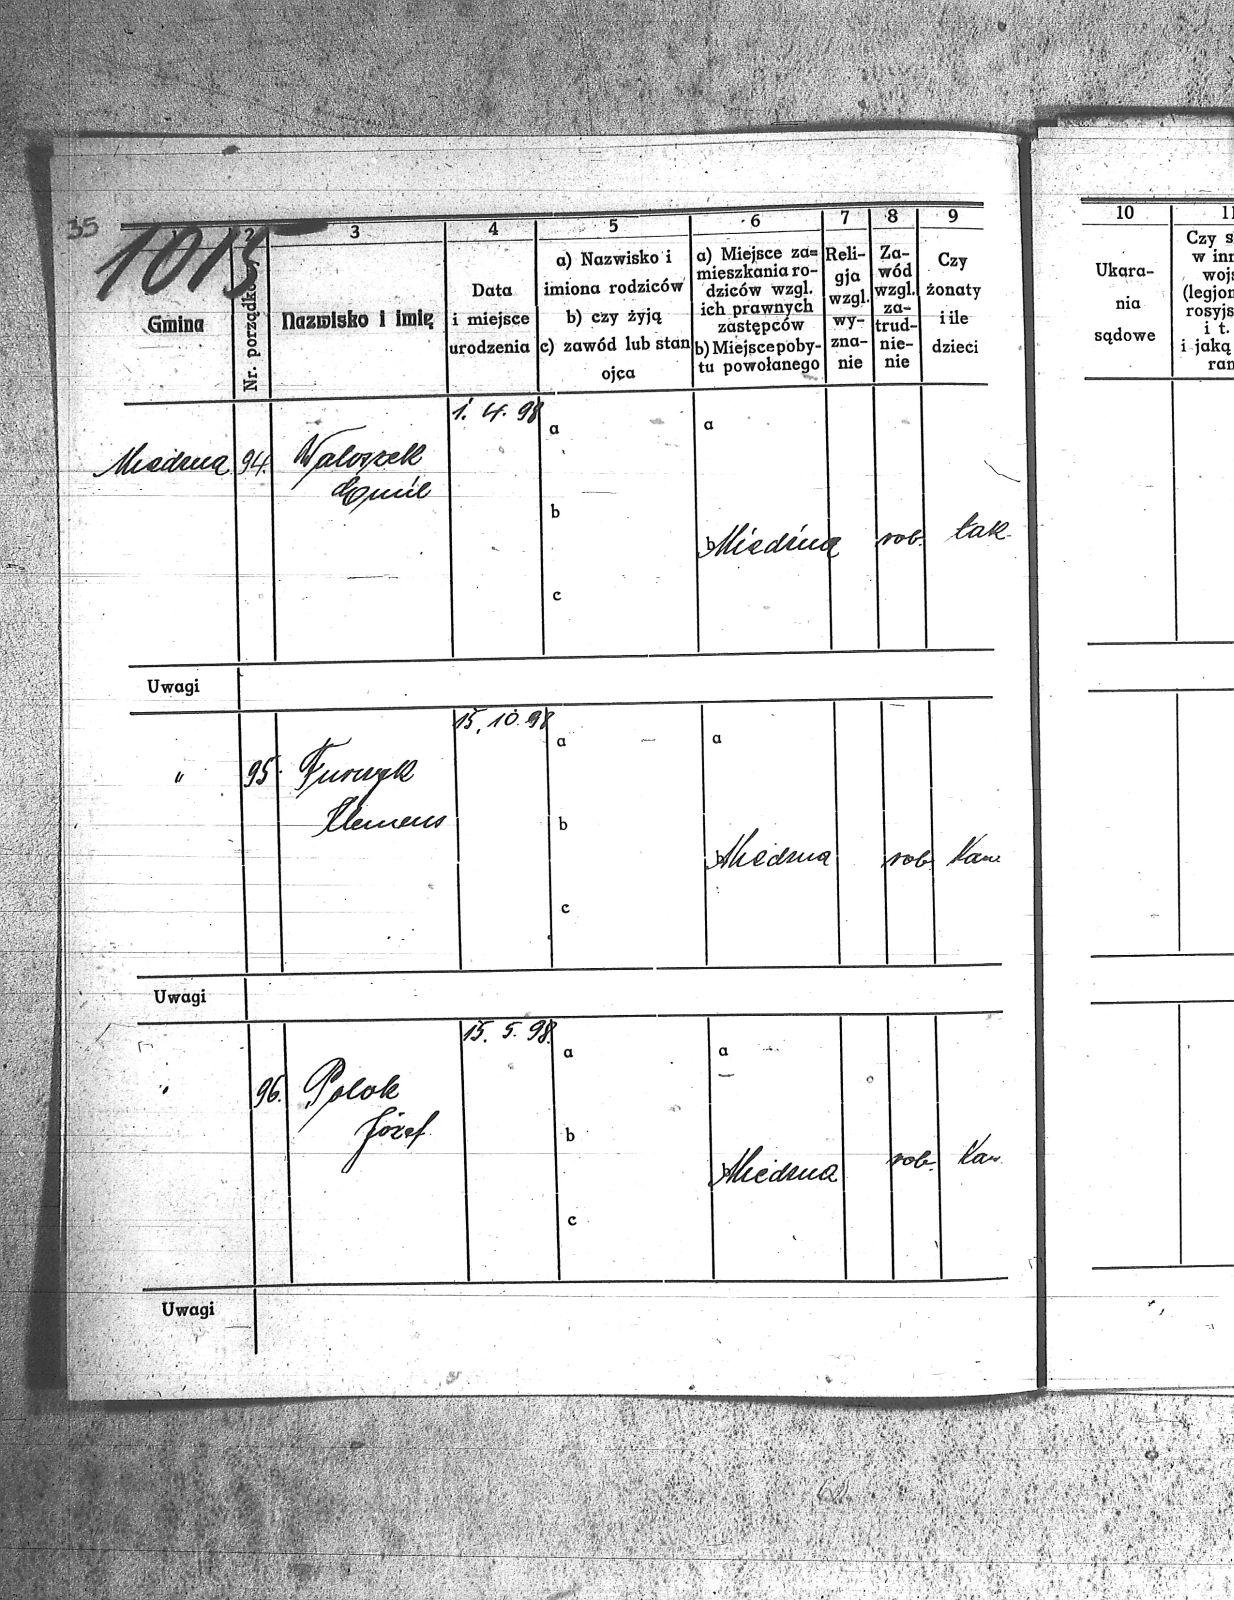 35
1015
1 2 3 4 5 6 7 8 9
Gmina
Nr. porządko
Nazwisko i imię
Data
i miejsce
urodzenia
a) Nazwisko i
imiona rodziców
b) czy żyją
c) zawód lub stan
ojca
a) Miejsce za=
mieszkania ro-
dziców wzgl.
ich prawnych
zastępców
b) Miejsce poby-
tu powołanego
Reli-
gja
wzgl.
wy-
zna-
nie
Za-
wód
wzgl.
za-
trud-
nie-
nie
Czy
żonaty
i ile
dzieci
1. 4. 98
Miedzna 94. Waloszek
Emil
a
b
c
a
b Miedzna
rob.
tak.
Uwagi
15. 10. 98
" 95. Furczyk
Klemens
a
b
c
a
b Miedzna
rob.
Kaw.
Uwagi
15. 5. 98.
" 96. Polok
Józef.
a
b
c
a
b Miedzna
rob.
Kaw.
Uwagi
10 11
Ukara-
nia
sądowe
Czy s
w inn
wojs
(legjon
rosyjs
i t.
i jaką
ran